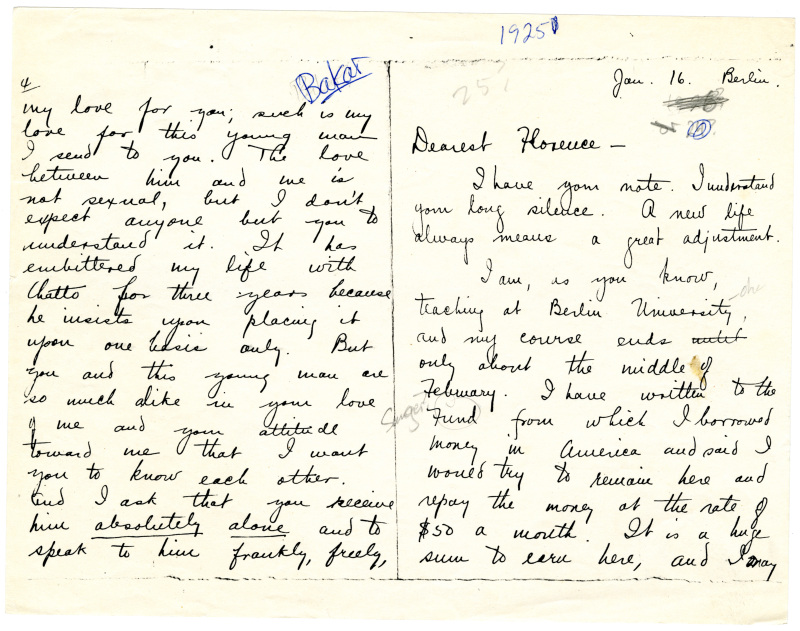 1925
4
Bakar
my love for you; such is my
love for this young man
I send to you. The love
between him and me is
not sexual, but I don't
expect anyone but you to
understand it. It has
embittered my life with
Chatto for three years because
he insists upon placing it
upon one basis only. But
you and this young man are
so much alike in your love
of me and your attitude
toward me that I want
you to know each other.
And I ask that you receive
him absolutely alone and to
speak to him frankly, freely,
251
Jan. 16. Berlin.
Dearest Florence –
I have your note. I understand
your long silence. A new life
always means a great adjustment.
I am, as you know,
teaching at Berlin University,
and my course ends until
only about the middle of
February. I have written to the
Fund from which I borrowed
money in America and said I
would try to remain here and
repay the money at the rate of
$50 a month. It is a huge
sum to earn here, and I may